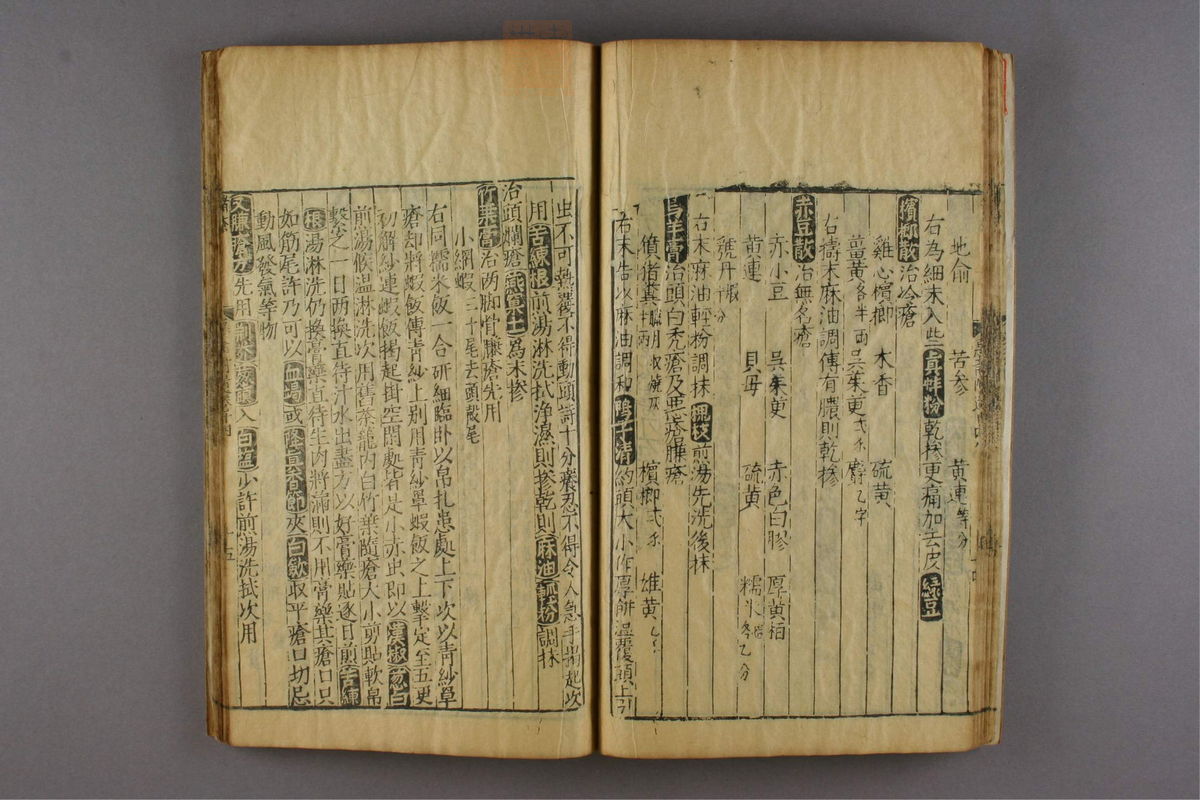 地俞 苦参 黄連等分
右為細末入些真蚌粉乾摻更痛加主皮緑豆
檳榔散治冷瘡
雞心檳榔 木香 硫黄
薑黄各半両 吴茱萸弍分 麝乙字
右擣末麻油調傅有膿則乾摻
赤豆散治無名瘡
赤小豆 吴茱萸 赤色白膠 厚黄柏
黄連 貝母 硫黄 糯米 各乙分
右末麻油輕粉調抹槐枝煎湯先洗後抹
烏羊膏治頭白秃瘡及悪瘡腫瘡
檳榔弍分 雄黄
右末先以麻油調和鴨子清約頭大小作厚餅漫覆頭上引
虫不可熱覆不得動頭許十分癢忍不得令人急手揭起次
用苦練根煎湯淋洗拭浄濕則摻乾則麻油輕粉調抹
治頭爛瘡燕窠土為末摻
竹葉膏治两脚骨臁瘡先用
小網蝦三十尾去頭殻尾
右同糯米飯一合研細臨卧以帛扎患處上下次以青紗罩
瘡却將蝦飯傅青紗上别用青紗罩蝦飯之上繫定至五更
初解紗連蝦飯揭起掛空閑處皆是小赤虫即以漢椒葱白
煎湯候温淋洗次用舊茶籠内白竹葉隨瘡大小剪貼軟帛
繫之一日两換直待汁水出盡方以好膏藥貼逐日煎苦練
根湯淋洗仍換膏藥直待生肉將滿則不用膏藥其瘡口只
如筋尾許乃可以血竭或降真香節夾白歛取平瘡口切忌
動風發氣等物
又臁瘡方先用入白塩少許煎湯洗拭次用